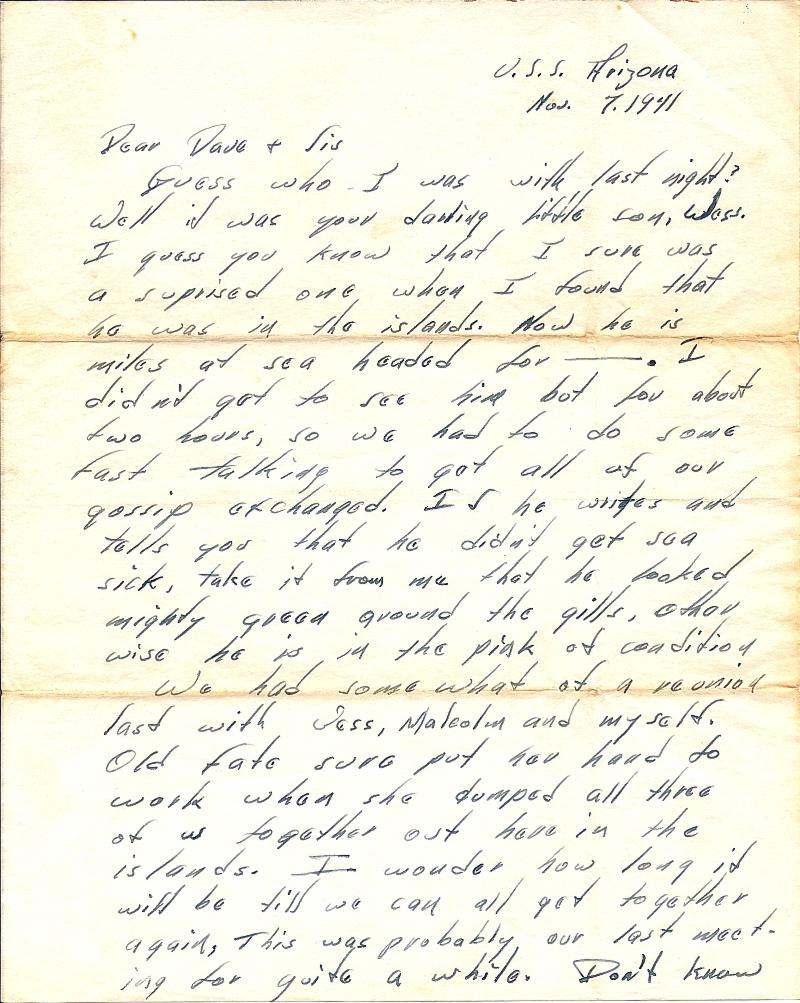 U.S.S. Arizona
Nov. 7. 1941
Dear Dave + Sis
Guess who I was with last night?
Well it was your darling little son, Wess.
I guess you know that I sure was
a suprised one when I found that
he was in the islands. Now he is
miles at sea headed for ———. I
didn't get to see him but for about
two hours, so we had to do some
fast talking to get all of our
gossip exchanged. If he writes and
tells you that he didn't get sea
sick, take it from me that he looked
mighty green around the gills, other
wise he is in the pink of condition
We had somewhat of a reunion
last with Jess, Malcolm and myself.
Old Fate sure put her hand to
work when she dumped all three
of us together out here in the
islands. I wonder how long it
will be till we can all get together
again, This was probably our last meet-
ing for quite a while. Don't know